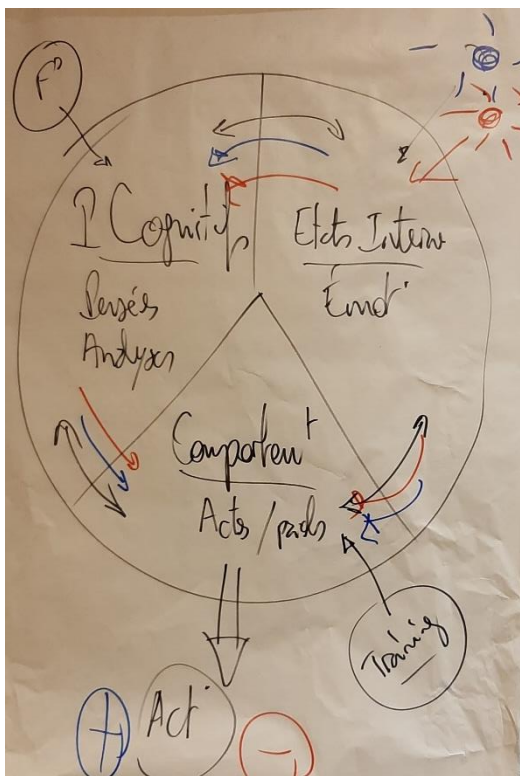 F°
P Cognitifs
Pensées
Analyses
Etats Interne
Émot°
Comportem^t
Actes / parols
Training
+
Act°
-